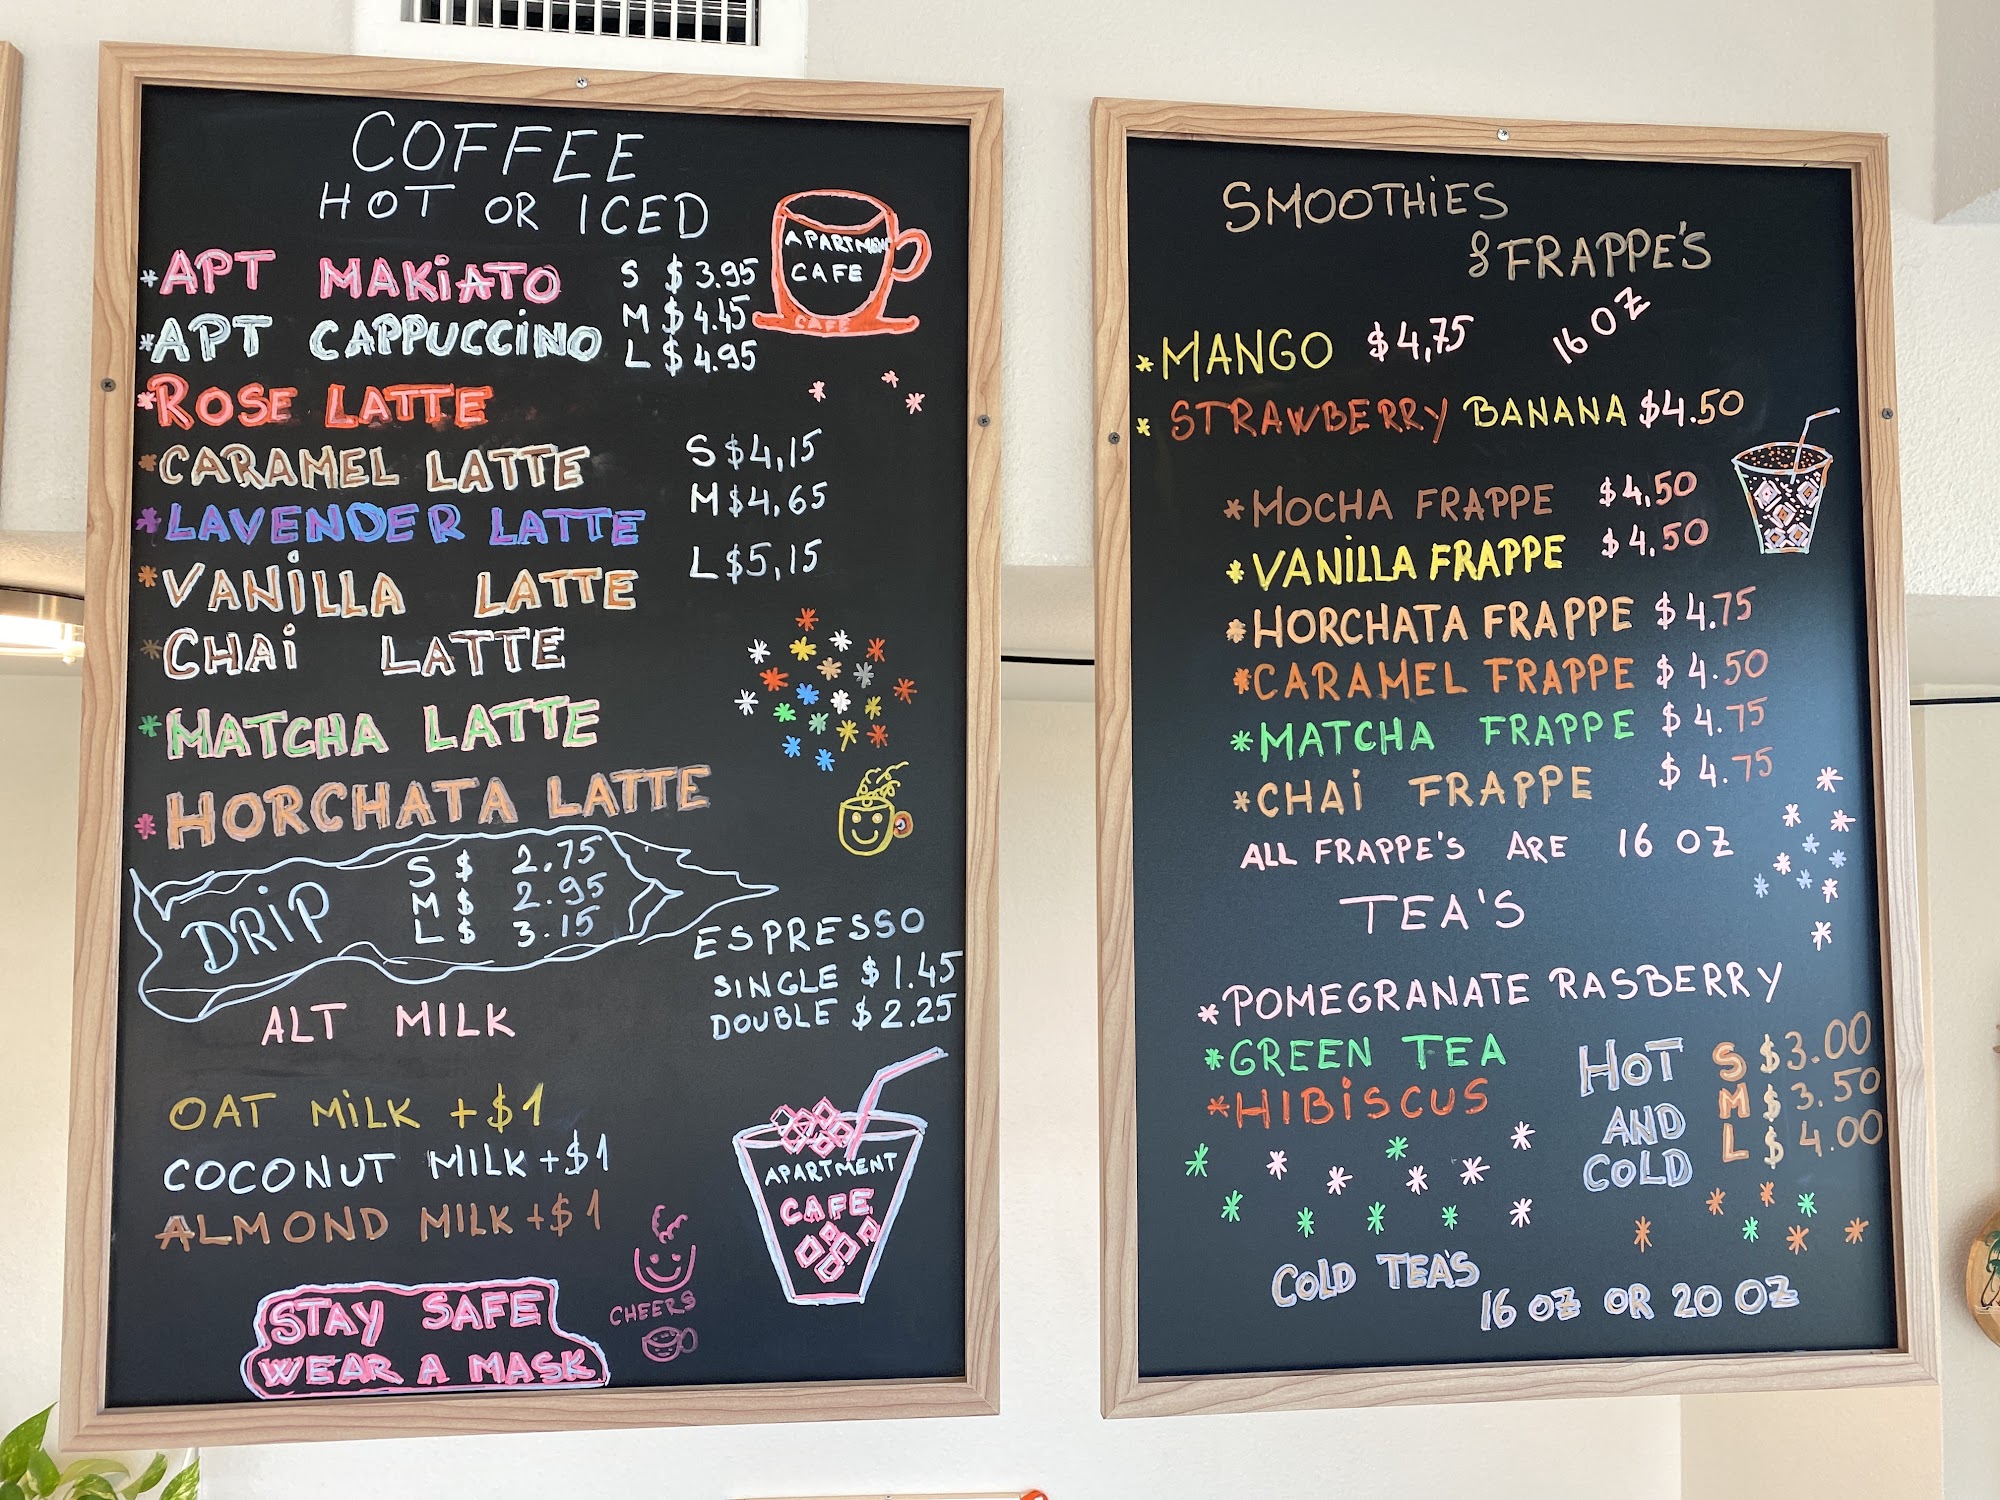 COFFEE
HOT OR ICED
APARTMENT
CAFE
CAFE
*APT MAKiATO
*APT CAPPUCCiNO
S $3.95
M $4.45
L $4.95
*ROSE LATTE
*CARAMEL LATTE
*LAVENDER LATTE
*VANiLLA LATTE
*CHAi LATTE
*MATCHA LATTE
*HORCHATA LATTE
S $4,15
M $4,65
L $5,15
DRiP
S $ 2.75
M $ 2.95
L $ 3.15
ESPRESSO
SINGLE $1.45
DOUBLE $2.25
ALT MILK
OAT MiLK +$1
COCONUT MILK +$1
ALMOND MILK +$1
APARTMENT
CAFE
STAY SAFE
WEAR A MASK
CHEERS
SMOOTHiES
& FRAPPE'S
*MANGO $4,75 16 OZ
*STRAWBERRY BANANA $4.50
*MOCHA FRAPPE $4,50
*VANiLLA FRAPPE $4,50
*HORCHATA FRAPPE $4.75
*CARAMEL FRAPPE $4.50
*MATCHA FRAPPE $4.75
*CHAi FRAPPE $4.75
ALL FRAPPE'S ARE 16 OZ
TEA'S
*POMEGRANATE RASBERRY
*GREEN TEA
*HIBiSCUS
HOT
AND
COLD
S $3.00
M $3.50
L $4.00
COLD TEA'S
16 OZ OR 20 OZ